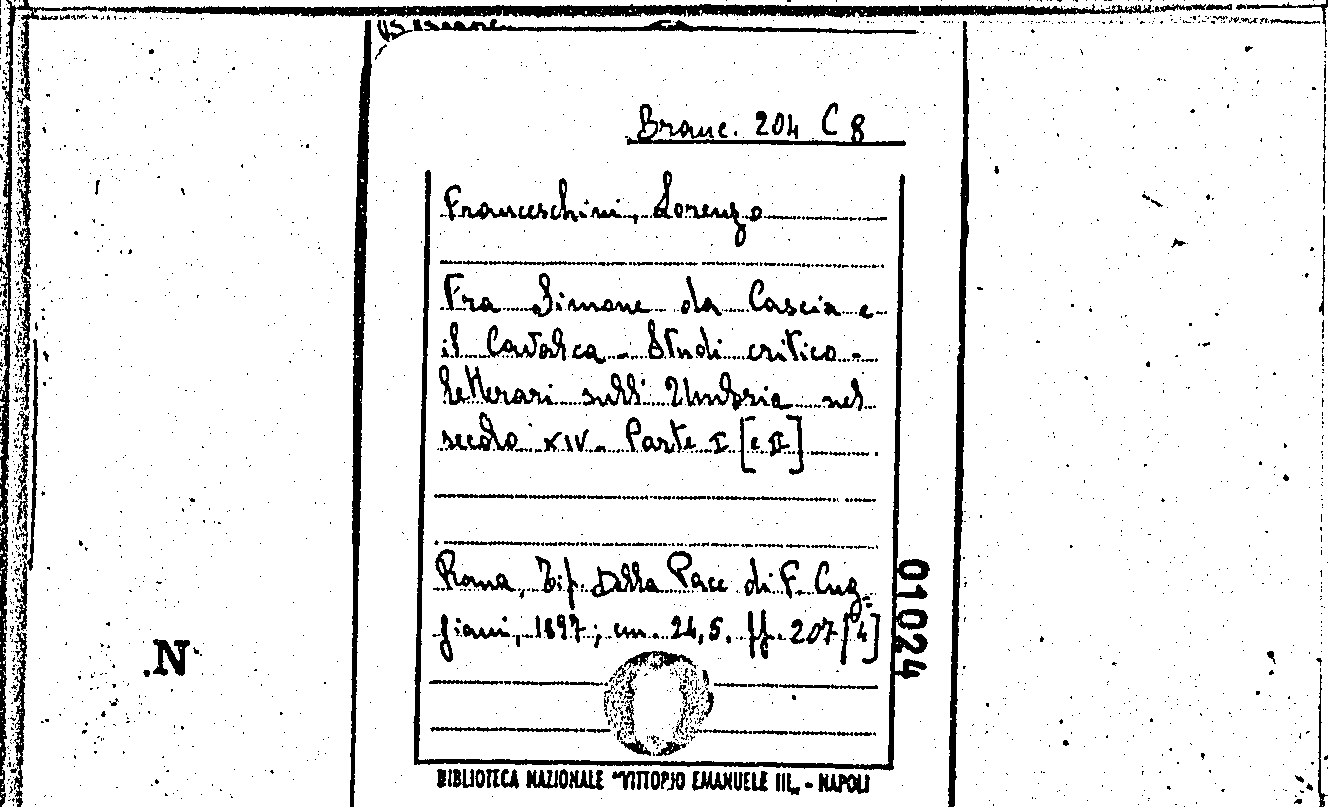 Branc. 204 C 8
Franceschini, Lorenzo
Fra Simone da Cascia e
il Cavalca - Studi critico-
letterari sull'Umbria nel
secolo XIV - Parte I [e II]
Roma, Tip. della Pace di F. Cug-
giani, 1897; cm. 24,5, ff. 207 [4]
01024
.N
BIBLIOTECA NAZIONALE "VITTORIO EMANUELE III„ - NAPOLI